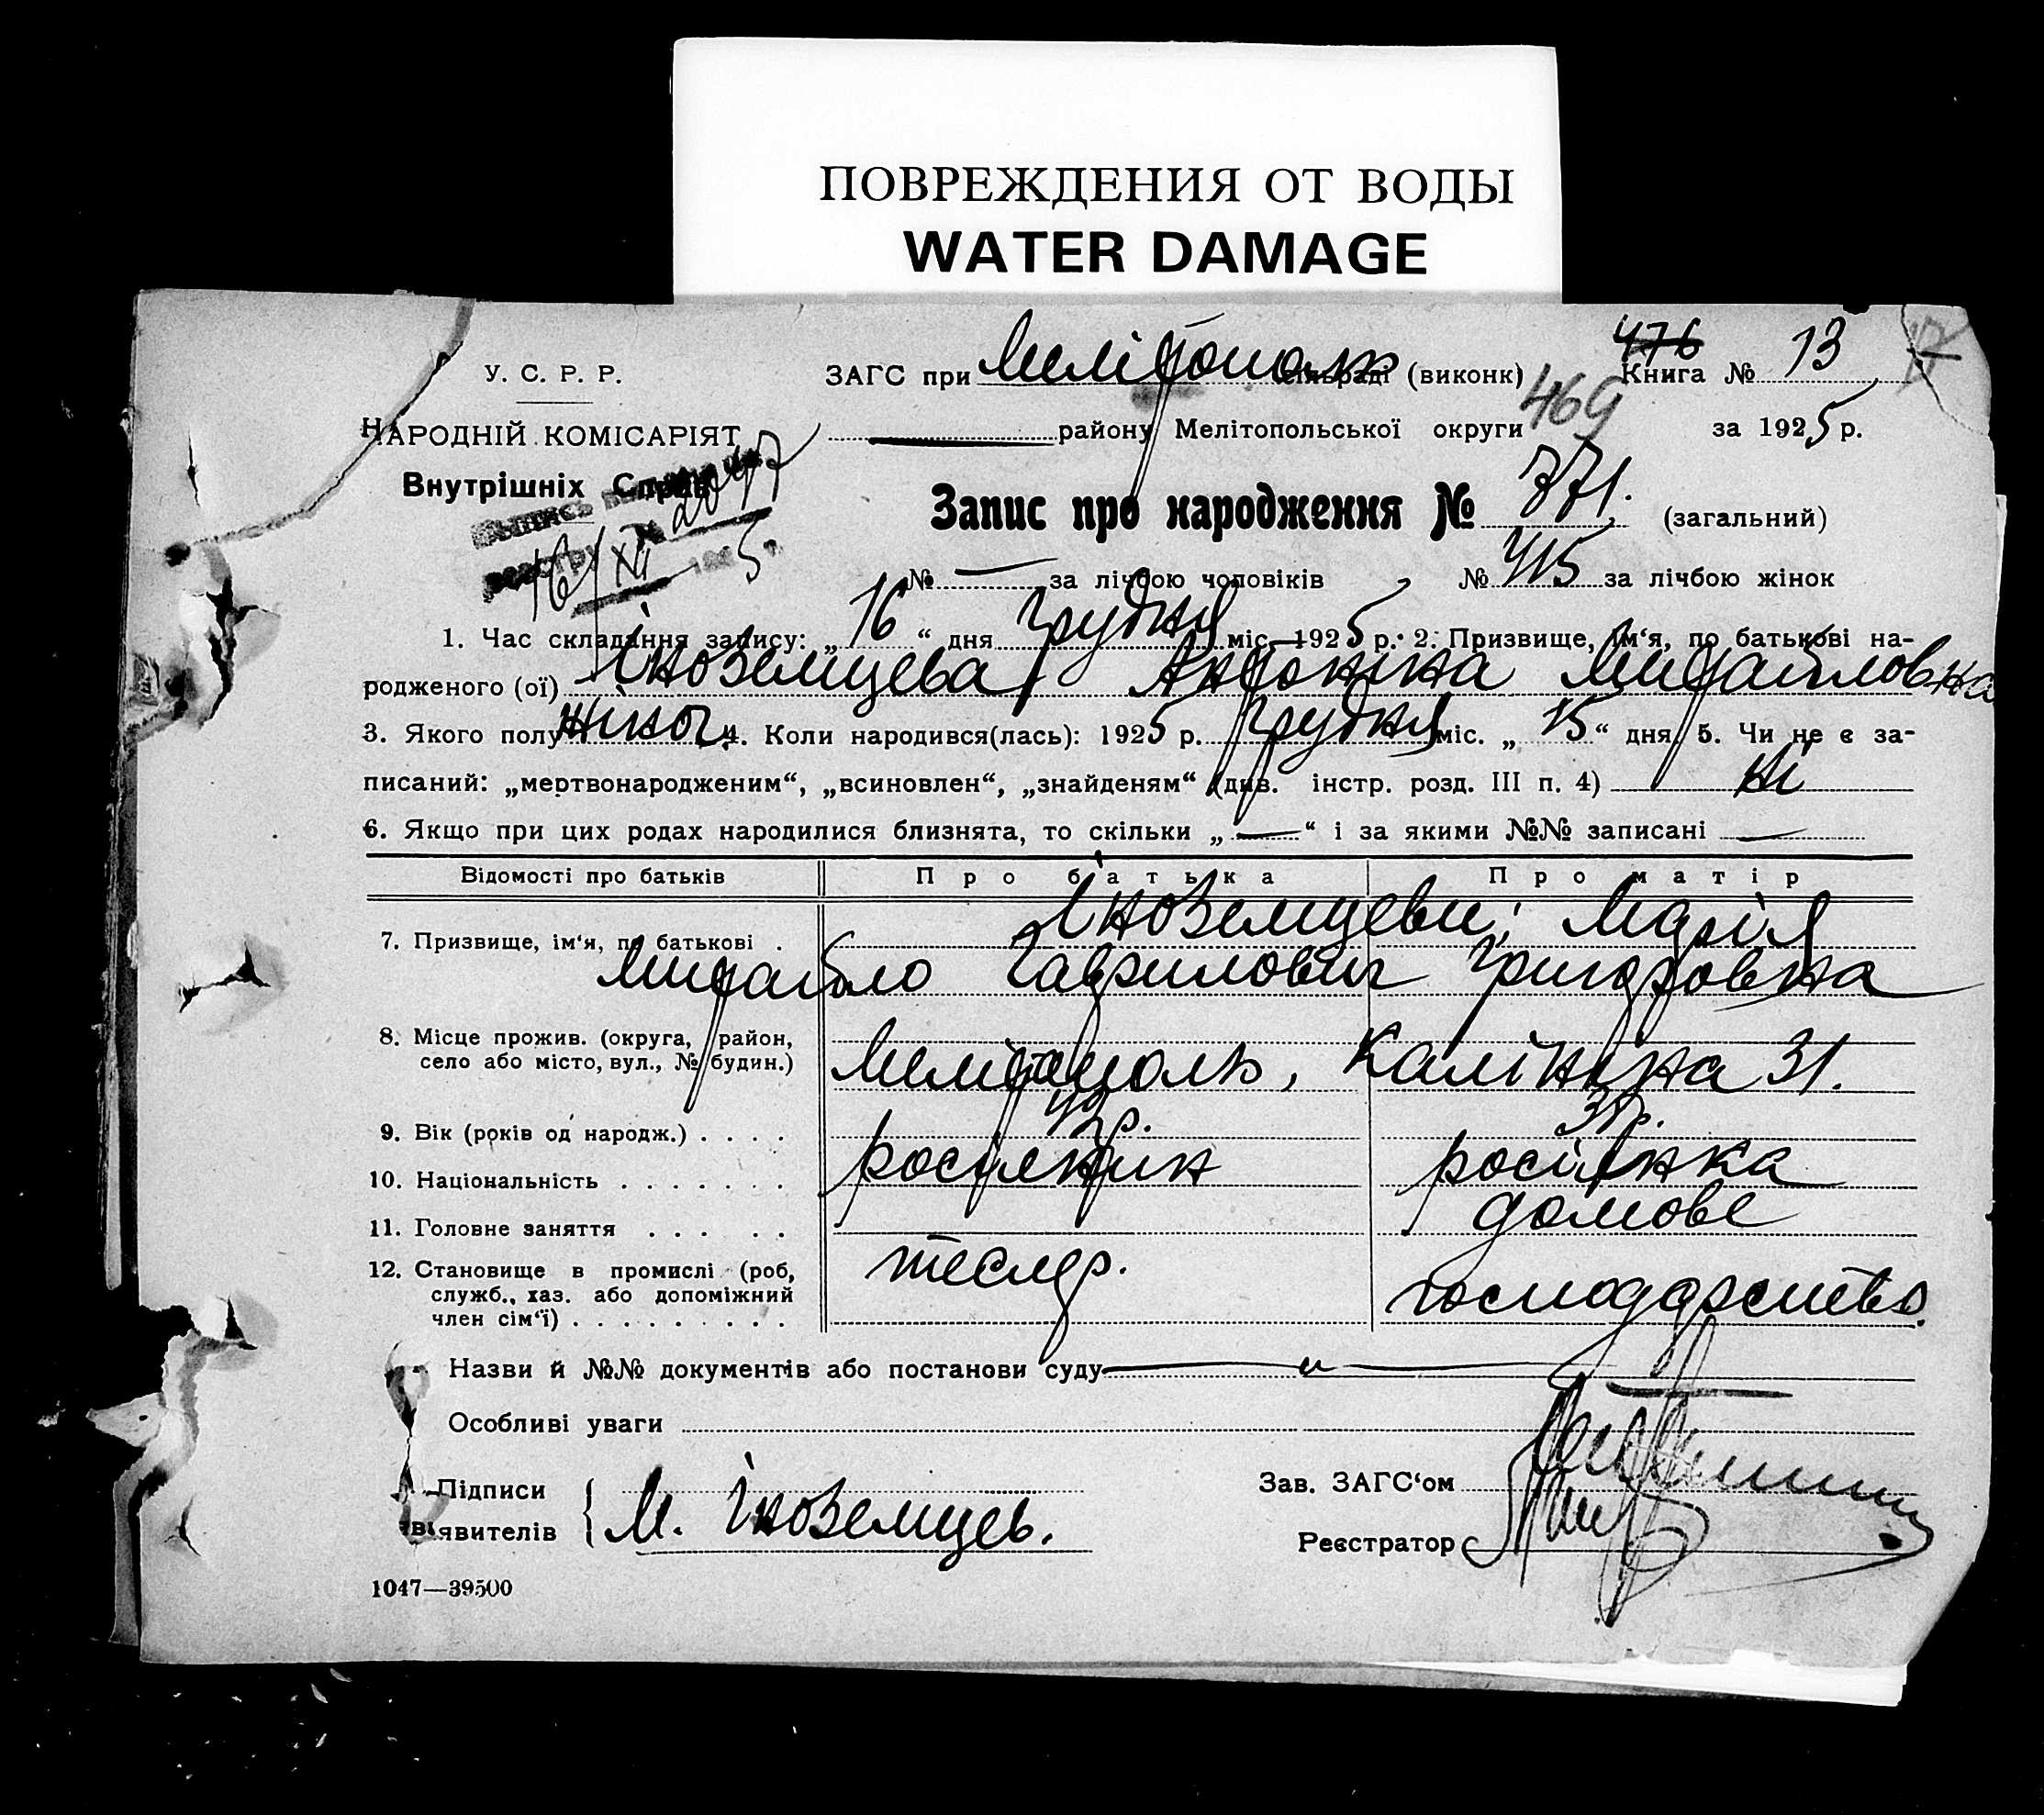 ПОВРЕЖДЕНИЯ ОТ ВОДЫ
WATER DAMAGE
У. С. Р. Р.
НАРОДНІЙ КОМІСАРІЯТ
Внутрішніх Справ
ЗАГС при Мелітополь (виконк) 476 Книга № 13
району Мелітопольської округи 469 за 1925 р.
Запис про народження № 871. (загальний)
№ — за лічбою чоловіків № 415 за лічбою жінок
1. Час складання запису: „16“ дня Грудня міс. 1925 р. 2. Призвище, ім‘я, по батькові на-
родженого (ої) Іноземцева Антоніна Михайловна
3. Якого полу жіноч. 4. Коли народився(лась): 1925 р. Грудня міс. „15“ дня 5. Чи не є за-
писаний: „мертвонародженим“, „всиновлен“, „знайденям“ (див. інстр. розд. III п. 4) ні
6. Якщо при цих родах народилися близнята, то скільки „—“ і за якими №№ записані —
Відомості про батьків Про батька Про матір
7. Призвище, ім‘я, по батькові . Іноземцеви; Марія
Михайло Гаврилович Григоровна
8. Місце прожив. (округа, район,
село або місто, вул., № будин.) Мелітополь, Калініна 31.
9. Вік (років од народж.) . . . . 42р. 31р.
10. Національність . . . . . . . росіянин росіянка
11. Головне заняття . . . . . домове
12. Становище в промислі (роб, тесляр.
служб., хаз. або допоміжний господарство.
член сім‘ї) . . . . . . . . .
Назви й №№ документів або постанови суду — " —
Особливі уваги
Підписи
виявителів М. Іноземцев.
Зав. ЗАГС‘ом
Реєстратор
1047—39500